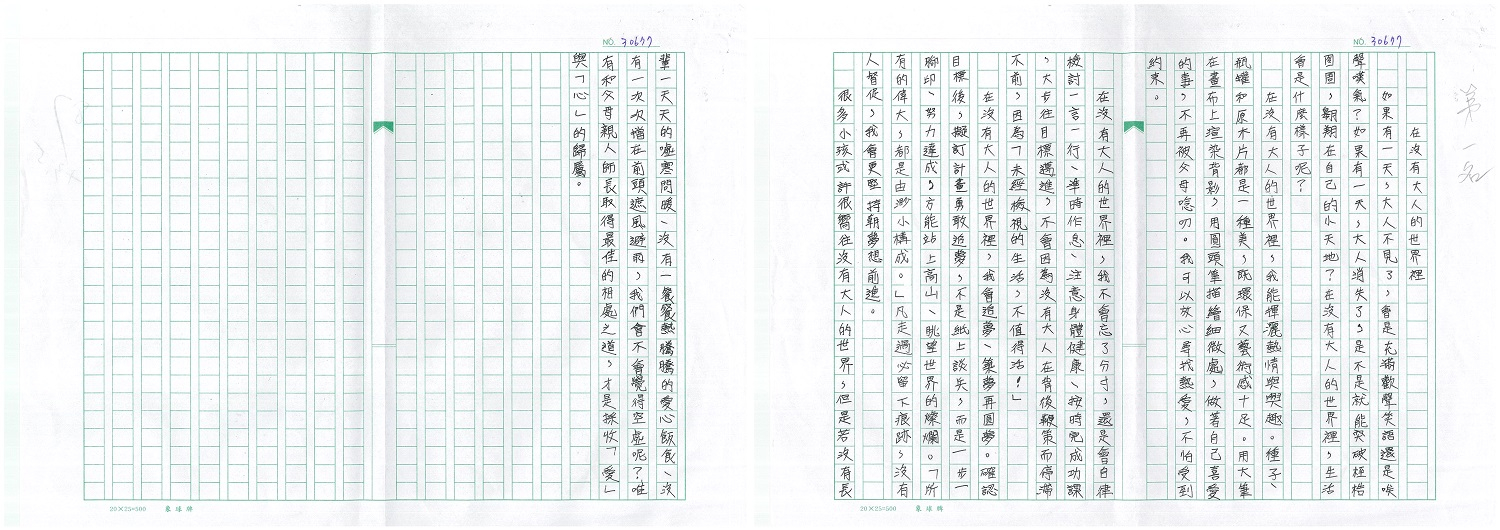 NO. 30677
第一名
在沒有大人的世界裡
如果有一天，大人不見了，會是充滿歡聲笑語還是唉
聲嘆氣？如果有一天，大人消失了，是不是就能突破桎梏
圄圄，翱翔在自己的小天地？在沒有大人的世界裡，生活
會是什麼樣子呢？
在沒有大人的世界裡，我能揮灑熱情與興趣。種子、
瓶罐和原木片都是一種美，既環保又藝術感十足。用大筆
在畫布上渲染背影，用圓頭筆描繪細微處，做著自己喜愛
的事，不再被父母唸叨。我可以放心尋找熱愛，不怕受到
約束。
在沒有大人的世界裡，我不會忘了分寸，還是會自律
檢討一言一行、準時作息、注意身體健康、按時完成功課
，大步往目標邁進，不會因為沒有大人在背後鞭策而停滯
不前，因為「未經檢視的生活，不值得活！」
在沒有大人的世界裡，我會追夢、築夢再圓夢。確認
目標後，擬訂計畫勇敢追夢，不是紙上談兵，而是一步一
腳印、努力達成，方能站上高山、眺望世界的燦爛。「所
有的偉大，都是由渺小構成。」凡走過必留下痕跡，沒有
人督促，我會更堅持朝夢想前進。
很多小孩或許很嚮往沒有大人的世界，但是若沒有長
20×25=500 象球牌
NO. 30677
輩一天天的噓寒問暖、沒有一餐餐熱騰騰的愛心飯食、沒
有一次次擋在前頭遮風避雨，我們會不會覺得空虛呢？唯
有和父母親人師長取得最佳的相處之道，才是採收「愛」
與「心」的歸屬。
20×25=500 象球牌